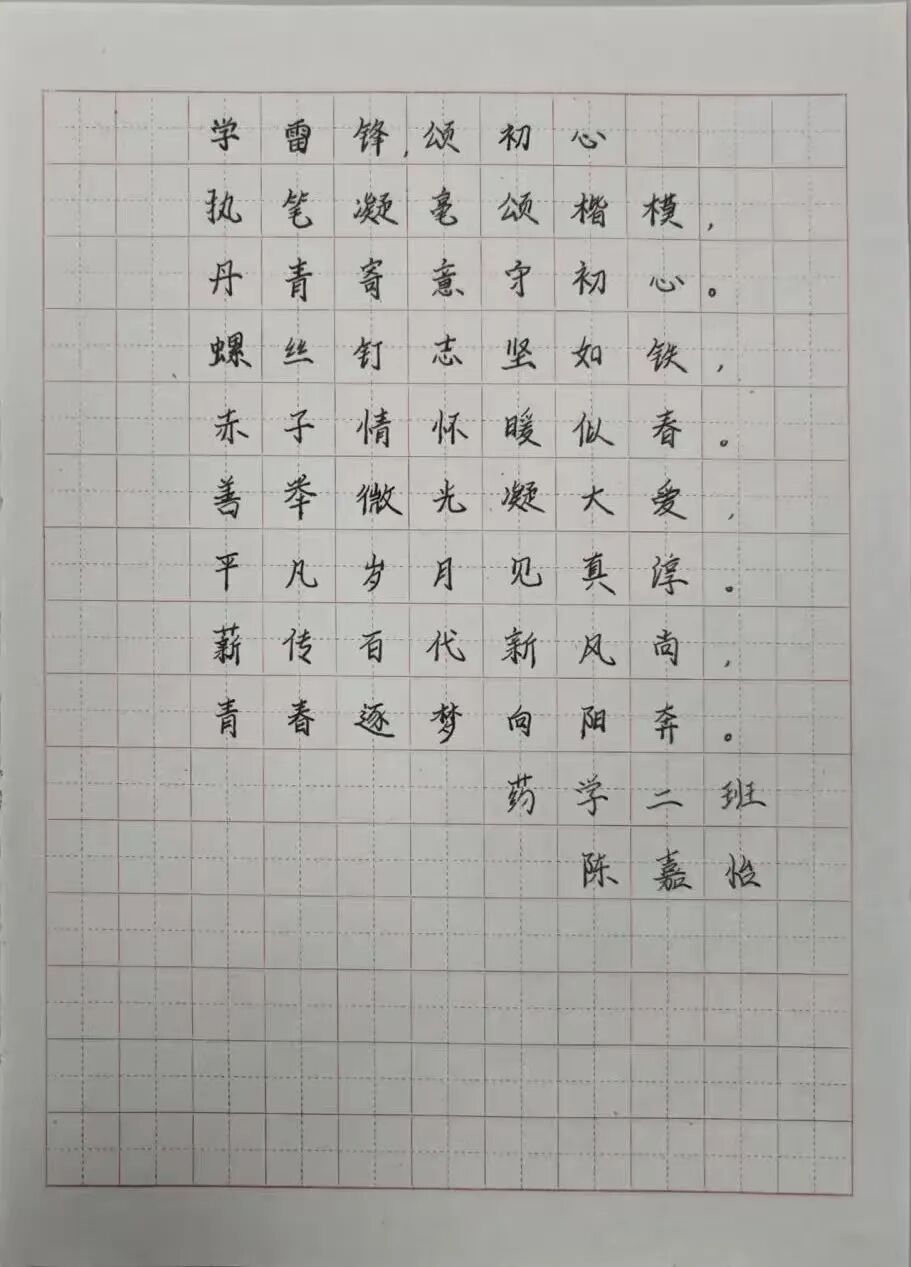 学雷锋,颂初心
执笔凝毫颂楷模，
丹青寄意守初心。
螺丝钉志坚如铁，
赤子情怀暖似春。
善举微光凝大爱，
平凡岁月见真淳。
薪传百代新风尚，
青春逐梦向阳奔。
药学二班
陈嘉怡